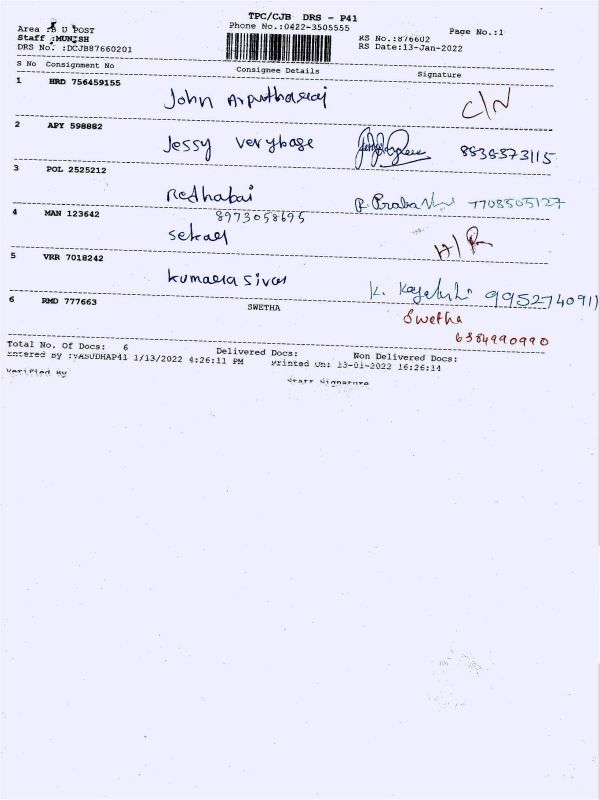 TPC/CJB DRS - P41
Area :B U POST Phone No.:0422-3505555 Page No.:1
Staff :MUNISH RS No.:876602
DRS No. :DCJB87660201 RS Date:13-Jan-2022
S No Consignment No Consignee Details Signature
1 HRD 756459155 John Arputharaj C/N
2 APY 598882 Jessy verybase 8838373115
3 POL 2525212 Redhabai 7708505127
8973058695
4 MAN 123642 sekar H/R
5 VRR 7018242 kumara sivar K. 9952740911
6 RMD 777663 SWETHA Swetha
6384990990
Total No. Of Docs: 6 Delivered Docs: Non Delivered Docs:
Entered By :VASUDHAP41 1/13/2022 4:26:11 PM Printed On: 13-01-2022 16:26:14
Verified By Staff Signature